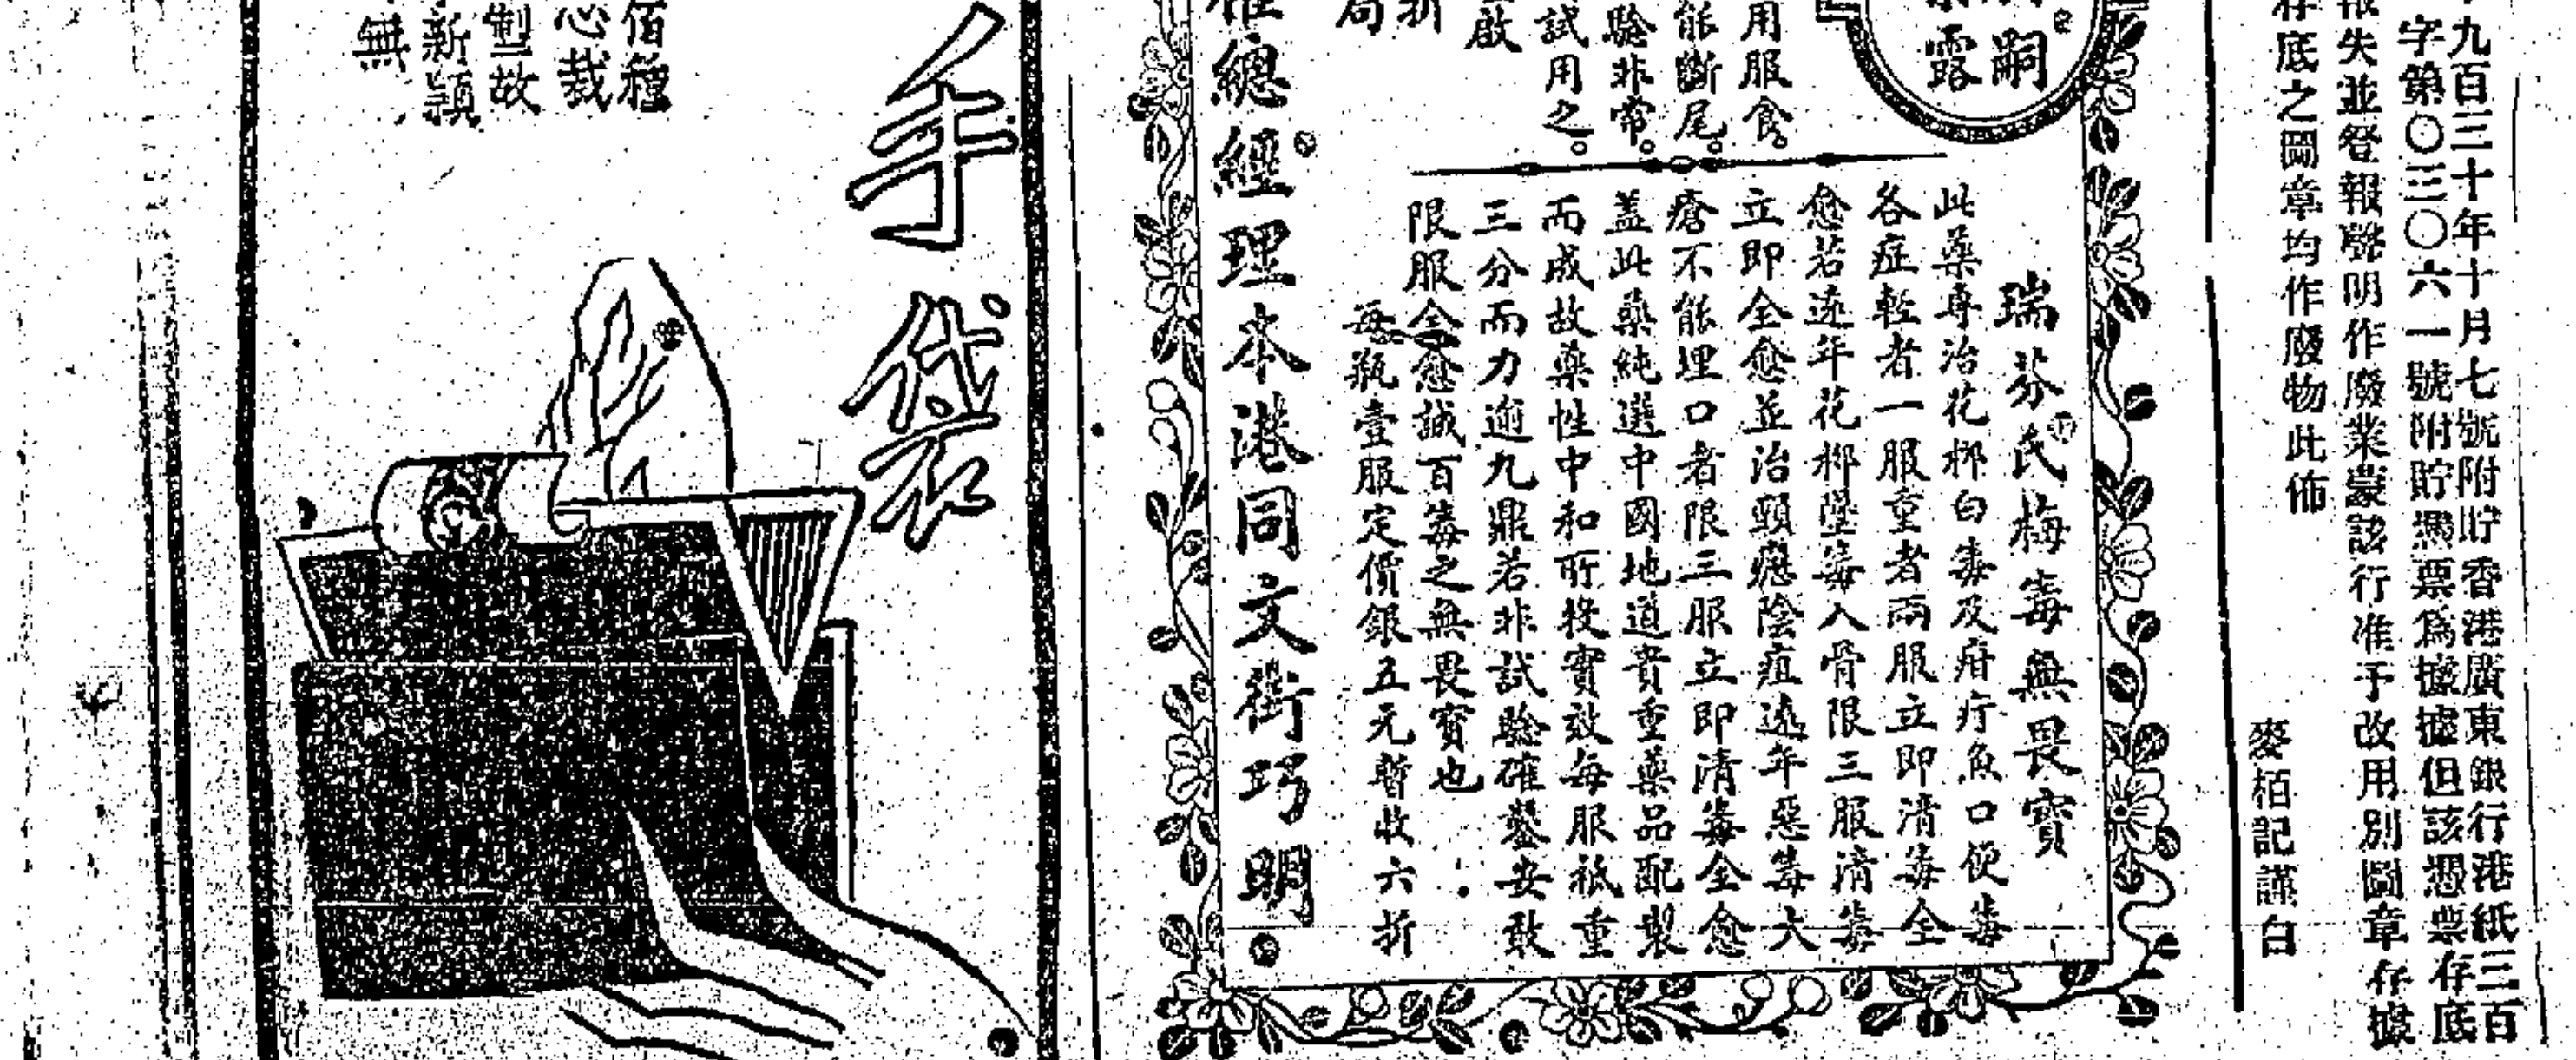 九百三十年十月七號附貯香港廣東銀行港紙三百
字第〇三〇六一號附貯憑票為據據但該憑票存底
報失並登報聲明作廢業蒙該行准予改用別圖章存據
存底之圖章均作廢物此佈
麥栢記謹白
嗣
露
用服食。
能斷尾。
驗非常。
試用之。
啟
折
局
瑞芬氏梅毒無畏寶
此藥專治花柳白毒及疳疔魚口便毒
各症輕者一服重者兩服立即清毒全
愈若遠年花柳墜毒入骨限三服清毒
立即全愈並治頸癧陰疽遠年惡毒大
瘡不能埋口者限三服立即清毒全愈
蓋此藥純選中國地道貴重藥品配製
而成故藥性中和所投實效每服祇重
三分而力逾九鼎若非試驗確鑿安敢
限服全愈誠百毒之無畏寶也
每瓶壹服定價銀五元暫收六折
總經理本港同文街巧明
手袋
佰種
心裁
製故
新穎
無